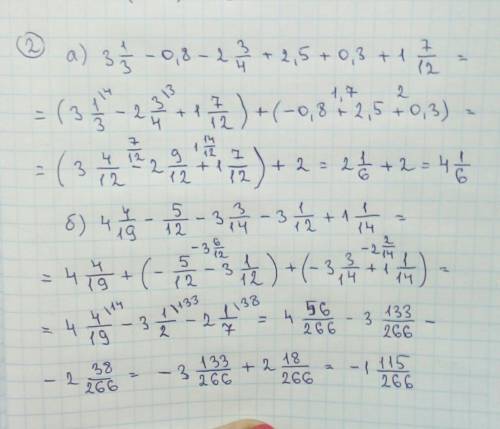 ② а) 3 1/3 − 0,8 − 2 3/4 + 2,5 + 0,3 + 1 7/12 =
= (3 1/3 \4 − 2 3/4 \3 + 1 7/12) + (−0,8 + 2,5 + 0,3) = 1,7 2
= (3 4/12 − 2 9/12 + 1 7/12) + 2 = 2 1/6 + 2 = 4 1/6 7/12 1 14/12
б) 4 4/19 − 5/12 − 3 3/14 − 3 1/12 + 1 1/14 =
= 4 4/19 + (− 5/12 − 3 1/12) + (−3 3/14 + 1 1/14) = −3 6/12 −2 2/14
= 4 4/19 \14 − 3 1/2 \133 − 2 1/7 \38 = 4 56/266 − 3 133/266 −
− 2 38/266 = − 3 133/266 + 2 18/266 = −1 115/266